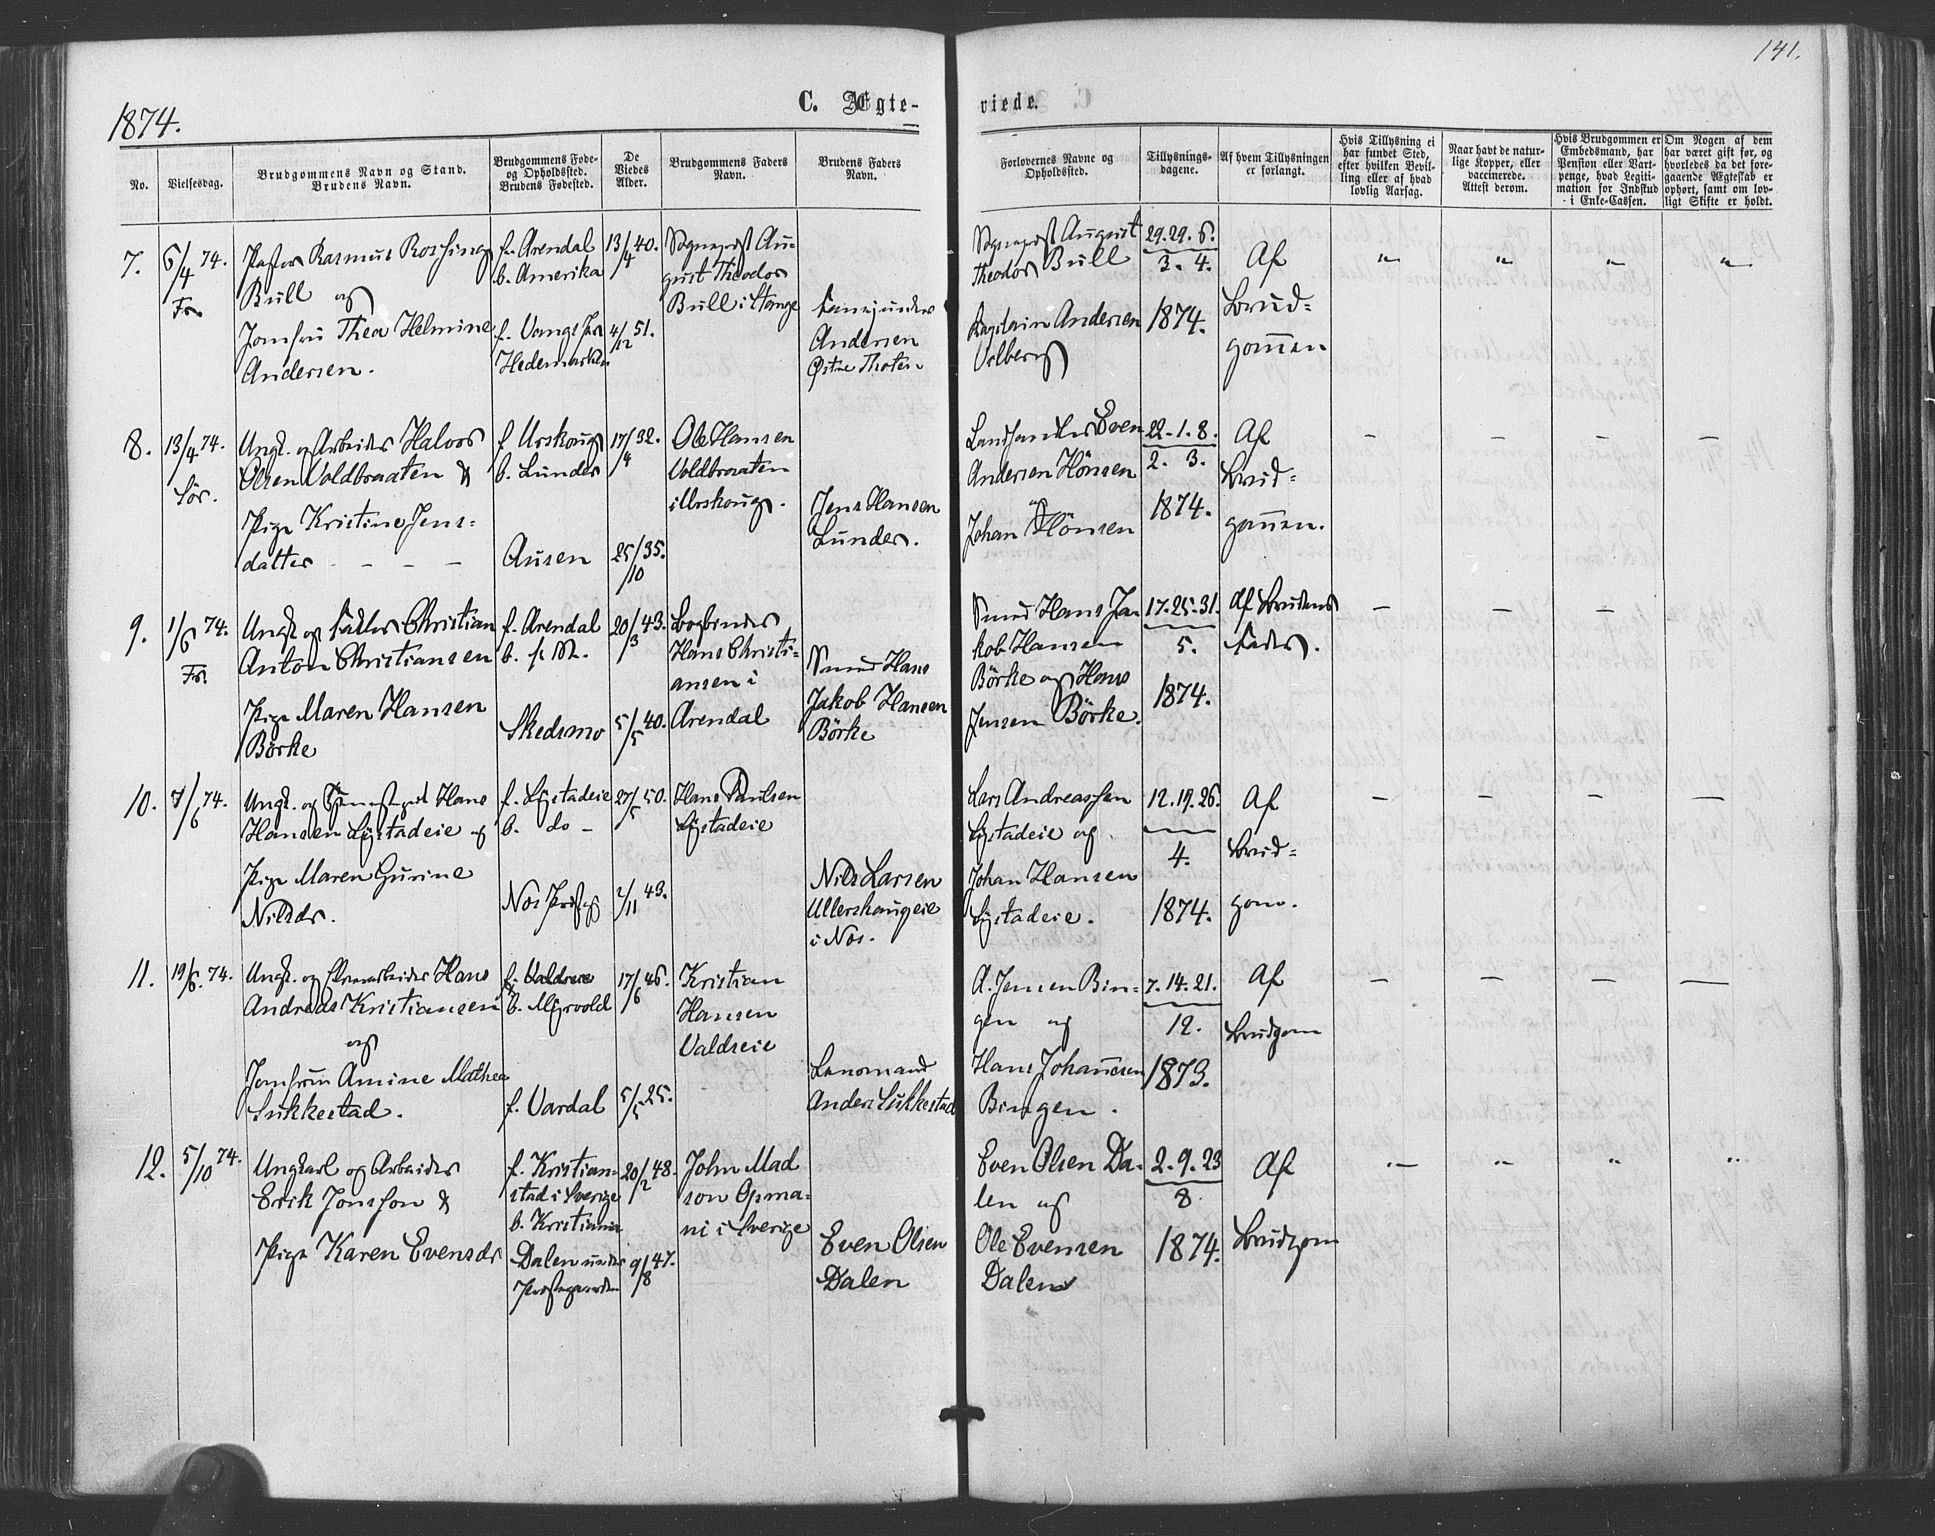 141.
1874.
C. Ægte-
viede.
No.
Vielsesdag.
Brudgommens Navn og Stand.
Brudens Navn.
Brudgommens Føde-
og Opholdssted.
Brudens Fødested.
De
Viedes
Alder.
Brudgommens Faders
Navn.
Brudens Faders
Navn.
Forlovernes Navne og
Opholdssted.
Tillysnings-
dagene.
Af hvem Tillysningen
er forlangt.
Hvis Tillysning ei
har fundet Sted,
efter hvilken Bevil-
ling eller af hvad
lovlig Aarsag.
Naar havt de natur-
lige Kopper, eller
vaccinerede.
Attest derom.
Hvis Brudgommen er
Embedsmand, har
Pension eller Vart-
penge, hvad Legiti-
mation for Indskud
i Enke-Cassen.
Om Nogen af dem
har været gift før, og
hvorledes da det fore-
gaaende Ægteskab er
ophørt, samt om lov-
ligt Skifte er holdt.
7.
6/4 74.
Fr.
Pastor Rasmus Rossing
Bull og
Jomfru Thea Helmine
Andersen.
f. Arendal
b. Amerika
f. Vangs Pr.
Hedemarken
13/4 40.
4/12 51.
Sognepræst Au-
gust Theodor
Bull i Stange
Andersen
Østre Thoten
Sognepræst August
Theodor Bull
Andersen
29. 29. 6.
3. 4.
1874.
Af
Brud-
gommen
" " " "
8.
13/4 74.
Sør.
Ungk. og Arbeider Halvor
Olsen Voldbraaten &
Pige Kristine Jens-
datter - - - -
f. Urskoug
b. Lunder
Ausen
17/4 32.
25/10 35.
Ole Hansen
Voldbraaten
i Urskoug.
Jens Hansen
Lunder.
Landhandler Even
Andersen Hönsen
og
Johan Hönsen
22. 1. 8.
2. 3.
1874.
Af
Brud-
gommen.
- - - -
9.
1/6 74.
Fr.
Ungk. og Christian
Anton Christiansen
Pige Maren Hansen
Börke
f. Arendal
b.
Skedsmo
20/3 43.
5/5 40.
Bogbinder
Hans Christi-
ansen i
Arendal
Smed Hans
Jakob Hansen
Börke
Smed Hans Ja-
kob Hansen
Börke og Hans
Jensen Börke.
17. 25. 31.
5.
1874.
Af Brudens
Fader.
- - - -
10.
7/6 74.
Ungk. og Hans
Hansen Lystadeie og
Pige Maren Gurine
Nilsdr.
f. Lystadeie
b. do -
Nes Præstegj
27/5 50.
2/11 43.
Hans Paulsen
Lystadeie
Nils Larsen
Ullershaugeie
i Nes.
Lars Andreassen
Lystadeie og
Johan Hansen
Lystadeie.
12. 19. 26.
4.
1874.
Af
Brud-
gom.
- - - -
11.
19/6. 74.
Ungk. og Hans
Andreas Kristiansen
og
Jomfru Amine Mathea
Sukkestad.
f. Valdreie
b. Myrvold
f. Vardal
17/6 46.
5/5 25.
Kristian
Hansen
Valdreie
Lensmand
Anders Sukkestad
A. Jensen Bin-
gen og
Hans Johannesen
Bingen.
7. 14. 21.
12.
1873.
Af
Brudgom
- - - -
12.
5/10 74.
Ungkarl og Arbeider
Erik Jonsson &
Pige Karen Evensdr
f. Kristian-
stad i Sverige
b. Kristiania
Dalen under
Præstegaarden
20/2 48.
9/8 47.
John Mad
son Opma-
ni i Sverige
Even Olsen
Dalen
Even Olsen Da-
len og
Ole Evensen
Dalen
2. 9. 23
8
1874.
Af
Brudgom
" " " "